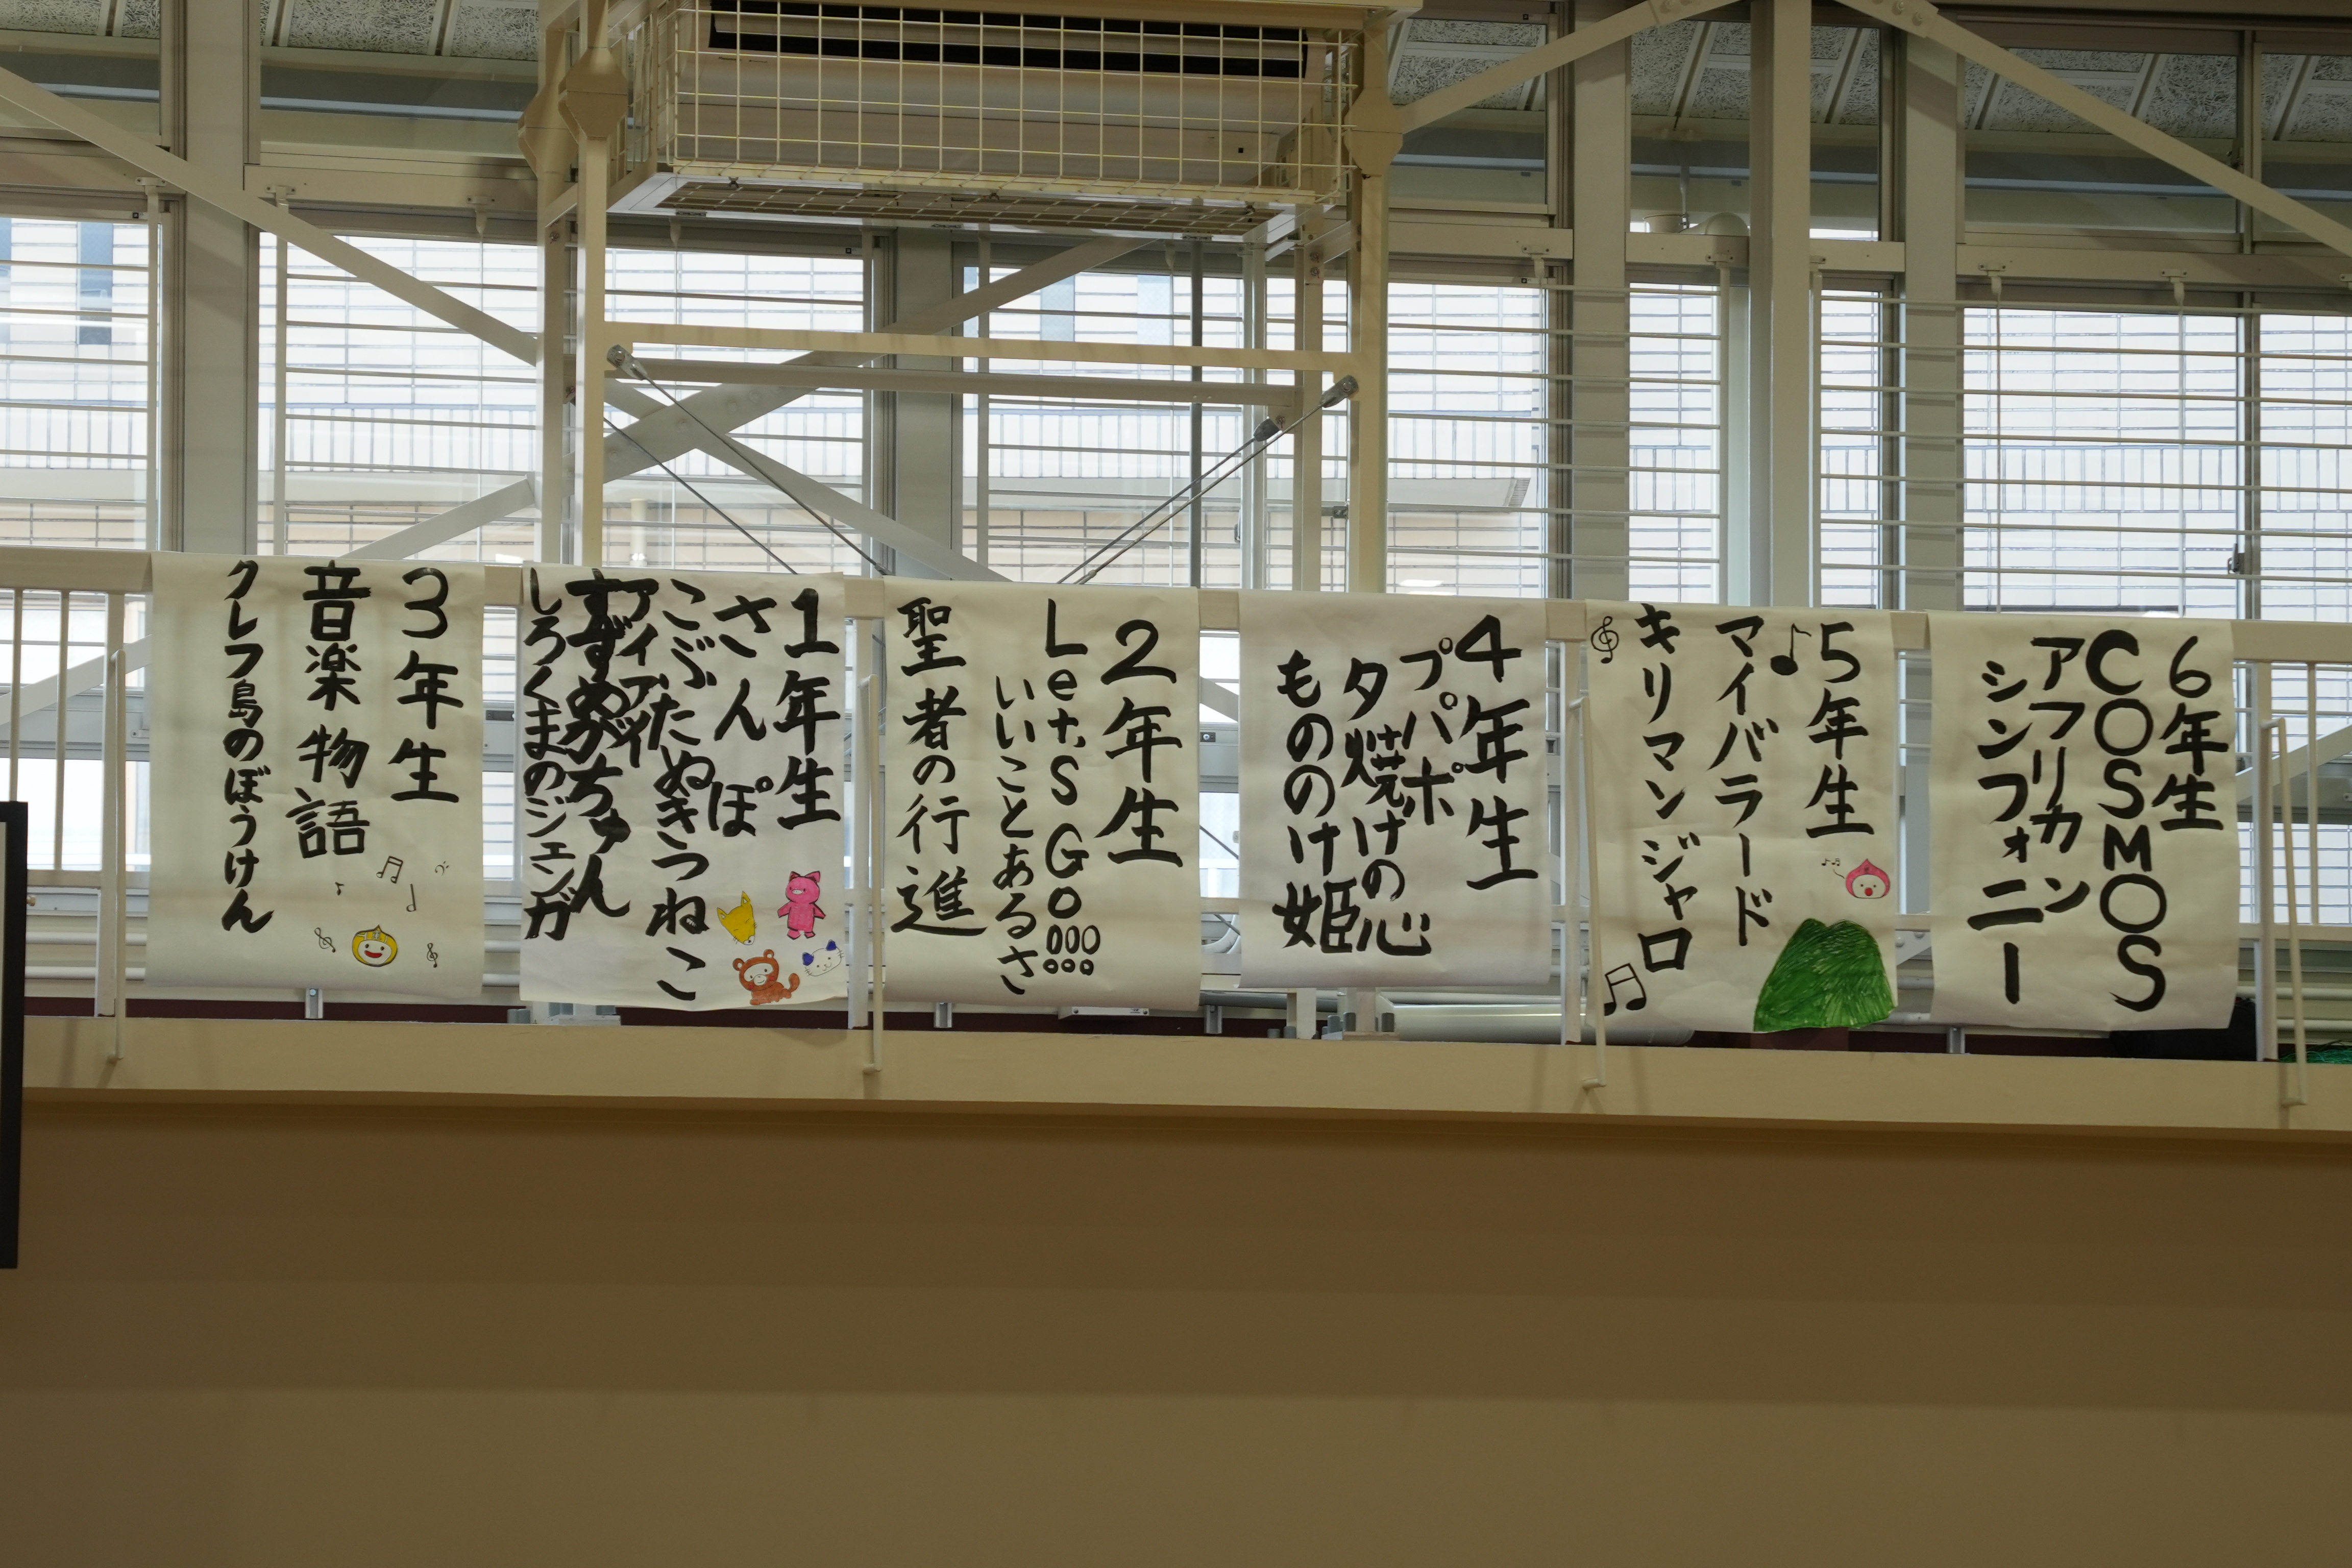 3年生
音楽物語
クレフ島のぼうけん
1年生
さんぽ
こぶたぬきつねこ
アイアイ
すずめがちゅん
しろくまのジェンガ
2年生
Let's Go!!!
いいことあるさ
聖者の行進
4年生
プパポ
夕焼けの心
もののけ姫
5年生
マイバラード
キリマンジャロ
6年生
COSMOS
アフリカン
シンフォニー